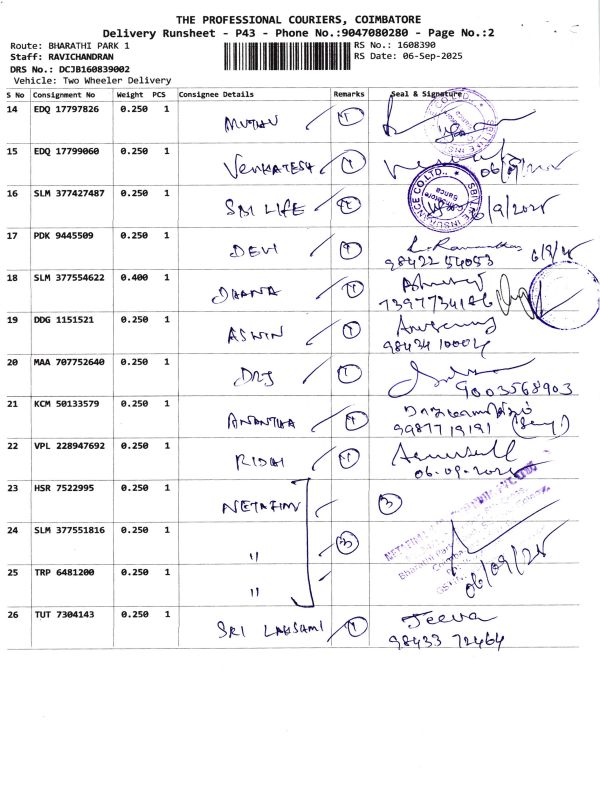 THE PROFESSIONAL COURIERS, COIMBATORE
Delivery Runsheet - P43 - Phone No.:9047080280 - Page No.:2
Route: BHARATHI PARK 1
RS No.: 1608390
Staff: RAVICHANDRAN
RS Date: 06-Sep-2025
DRS No.: DCJB160839002
Vehicle: Two Wheeler Delivery
S No Consignment No Weight PCS Consignee Details Remarks Seal & Signature
14 EDQ 17797826 0.250 1 MUTHU
15 EDQ 17799060 0.250 1 VENKATESH
16 SLM 377427487 0.250 1 SBI LIFE 6/9/2025
SBI LIFE INSURANCE CO.LTD.,
17 PDK 9445509 0.250 1 DEVI
98422 54053 6/9/25
18 SLM 377554622 0.400 1 DHANA
7397734186
19 DDG 1151521 0.250 1 ASWIN
98434 10004
20 MAA 707752640 0.250 1
9003568903
21 KCM 50133579 0.250 1 ANANTHA
9987719191
22 VPL 228947692 0.250 1 RIDHI
06.09.2025
23 HSR 7522995 0.250 1 NETAFIM 3
24 SLM 377551816 0.250 1 " 3
25 TRP 6481200 0.250 1 "
06/09/25
26 TUT 7304143 0.250 1 SRI LAKSHMI 1 Jeeva
98433 72464